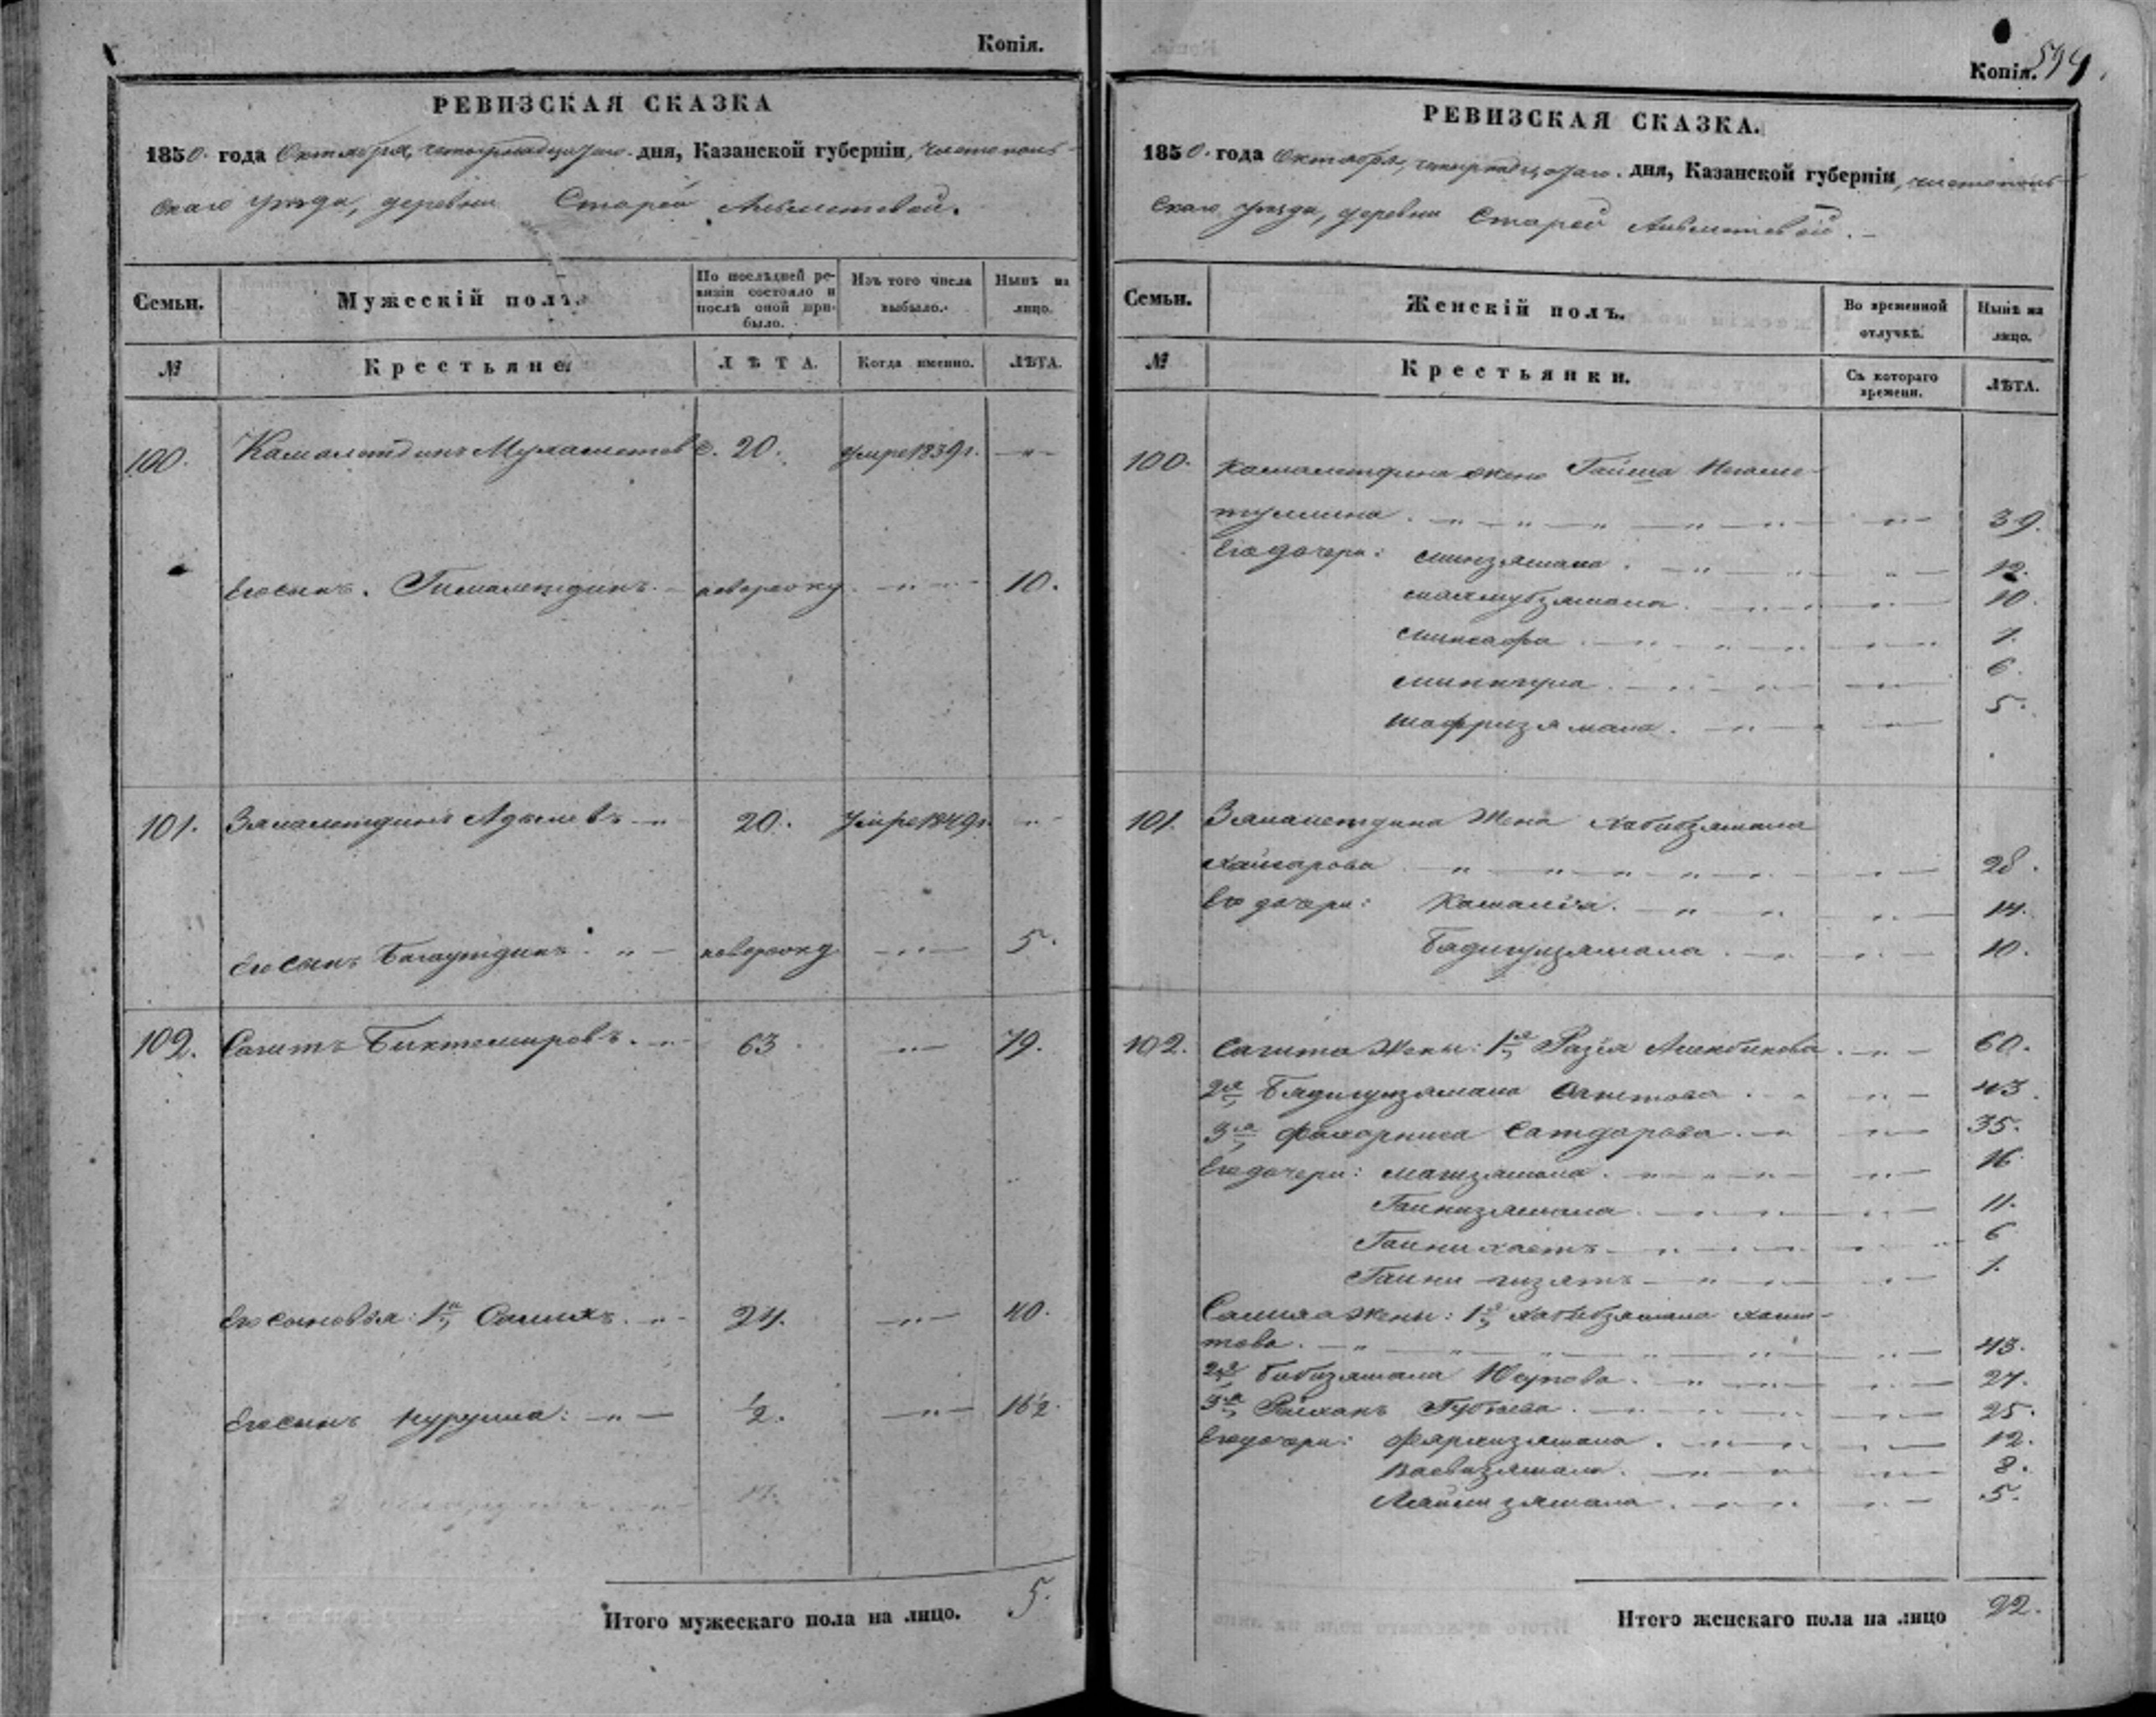 Копія.
РЕВИЗСКАЯ СКАЗКА
1850. года Октября, четырнадцатаго. дня, Казанской губерніи, Чистополь-
скаго уѣзда, деревни Старой Альметевой.
Семьи.
Мужескій полъ.
По послѣдней ре-
визіи состояло и
послѣ оной при-
было.
Изъ того числа
выбыло.
Нынѣ на
лицо.
№
Крестьяне
ЛѢТА.
Когда именно.
ЛѢТА.
100. Камалетдинъ Мухаметовъ. 20. умре 1839 г. —"—
Его сынъ. Гималетдинъ. — —"— 10.
101. Замалетдинъ Адылевъ —"— 20. умре 1849 г. —"—
Его сынъ Багаутдинъ. "— —"— 5.
102. Сагитъ Биктемировъ. —"— 63 —"— 79.
Его сыновья: 1й Салихъ. —"— 24. —"— 40.
Его сынъ Нурулла: —"— 1/2. —"— 16 1/2.
Итого мужескаго пола на лицо. 5.
Копія. 594.
РЕВИЗСКАЯ СКАЗКА.
1850. года Октября, четырнадцатаго. дня, Казанской губерніи, Чистополь-
скаго уѣзда, деревни Старой Альметевой. —
Семьи.
Женскій полъ.
Во временной
отлучкѣ.
Нынѣ на
лицо.
№
Крестьянки.
Съ котораго
времени.
ЛѢТА.
100. Камалетдина жена Гайша Нигаме-
туллина 39.
Его дочери: Минзямала. 12.
10.
Минсафа 7.
Миннура 6.
Шафризямала. 5.
101. Замалетдина Жена Хабибзямала
28.
Его дочери: Камалія. 14.
Бадигулзямала 10.
102. Сагита Жены: 1я Разія 60.
2я Бадигулзямала 43.
3я Сатдарова. 35.
Его дочери: Магизямала. 16.
Гайнизямала. 11.
6
1.
Салиха Жены: 1я Хабибзямала Хами-
това. 43.
2я Бибизямала Юсупова. 27.
3я Райханъ Губеева. 25.
Его дочери: 12.
8.
5.
Итого женскаго пола на лицо 22.